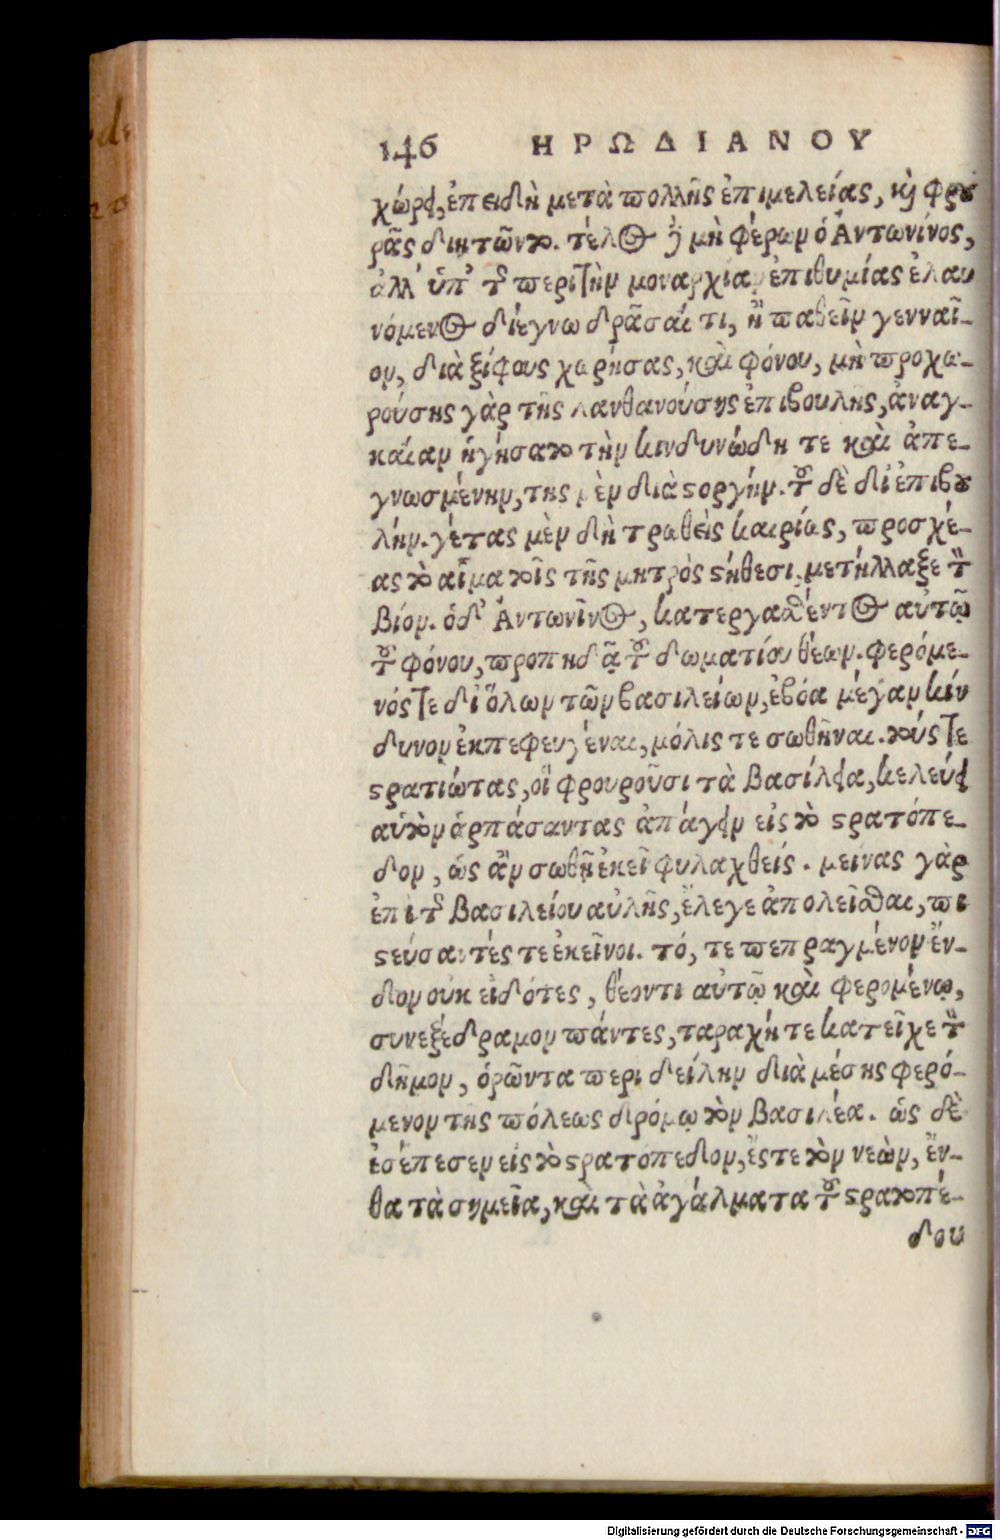 146 ΗΡΩΔΙΑΝΟΥ
χώρει, ἐπειδὴ μετὰ πολλῆς ἐπιμελείας, καὶ φρου
ρᾶς διῃτῶντο. τέλος δὲ μὴ φέρων ὁ Ἀντωνίνος,
ἀλλ' ὑπὸ τῆς περὶ τὴν μοναρχίαν ἐπιθυμίας ἐλαυ
νόμενος διέγνω δρᾶσαί τι, ἢ παθεῖν γενναῖ-
ον, διὰ ξίφους χωρήσας, καὶ φόνου, μὴ προχω-
ρούσης γὰρ τῆς λανθανούσης ἐπιβουλῆς, ἀναγ-
καίαν ἡγήσατο τὴν κινδυνώδη τε καὶ ἀπε-
γνωσμένην, της μὲν διὰ στοργήν. τοῦ δὲ δι' ἐπιβου
λήν. γέτας μὲν δὴ τρωθεὶς καιρίως, προσχέ-
ας τὸ αἷμα τοῖς τῆς μητρὸς στήθεσι, μετήλλαξε τὸν
βίον. ὁ δ' Ἀντωνῖνος, κατεργασθέντος αὐτῷ
τοῦ φόνου, προπηδᾷ τοῦ δωματίου θέων. φερόμε-
νός τε δι' ὅλων τῶν βασιλείων, ἐβόα μέγαν κίν
δυνον ἐκπεφευγέναι, μόλις τε σωθῆναι. τούς τε
στρατιώτας, οἳ φρουροῦσι τὰ βασίλεια, κελεύει
αὐτὸν ἁρπάσαντας ἀπάγειν εἰς τὸ στρατόπε-
δον, ὡς ἂν σωθῇ ἐκεῖ φυλαχθείς. μείνας γὰρ
ἐπὶ τῆς βασιλείου αὐλῆς, ἔλεγε ἀπολεῖσθαι, πι
στεύσαντές τε ἐκεῖνοι. τό, τε πεπραγμένον ἔν-
δον οὐκ εἰδότες, θέοντι αὐτῷ καὶ φερομένῳ,
συνεξέδραμον πάντες, ταραχή τε κατεῖχε τὸν
δῆμον, ὁρῶντα περὶ δείλην διὰ μέσης φερό-
μενον τῆς πόλεως δρόμῳ τὸν βασιλέα. ὡς δὲ
ἐσέπεσεν εἰς τὸ στρατόπεδον, ἔς τε τὸν νεὼν, ἔν-
θα τὰ σημεῖα, καὶ τὰ ἀγάλματα τοῦ στρατοπέ-
δου
Digitalisierung gefördert durch die Deutsche Forschungsgemeinschaft - DFG